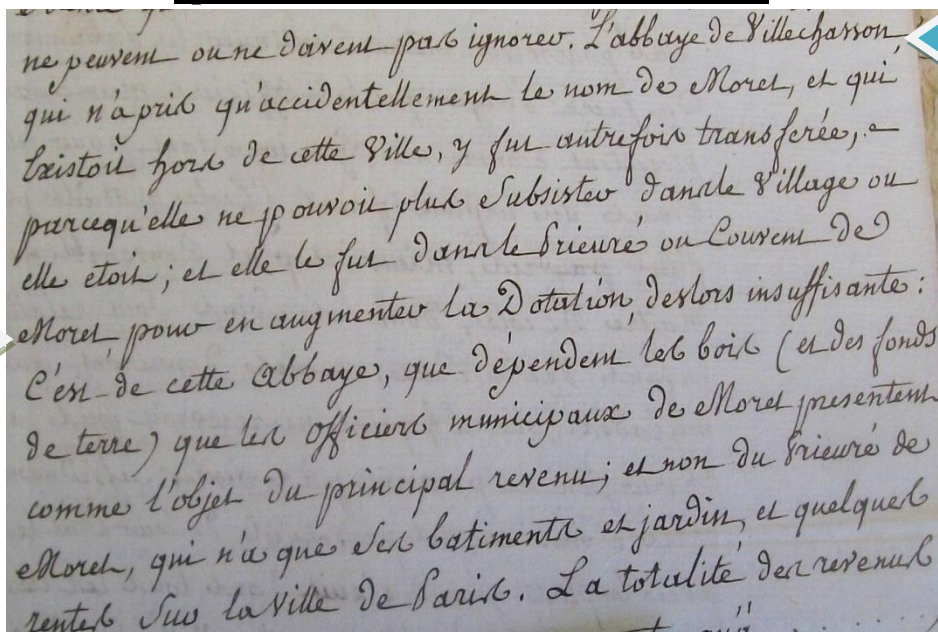 ne peuvent ou ne doivent pas ignorer. L'abbaye de Villechasson
qui n'a pris qu'accidentellement le nom de Moret, et qui
Existoit hors de cette Ville, y fut autrefois transferée,
parcequ'elle ne pouvoit plus Subsister dans le Village ou
elle etoit; et elle le fut dans le Prieuré ou Couvent de
Moret pour en augmenter la Dotation deslors insuffisante:
C'est de cette Abbaye, que dépendent les bois (et des fonds
de terre) que les officiers municipaux de Moret presentent
comme l'objet du principal revenu; et non du Prieuré de
Moret, qui n'a que Ses batiments et jardin, et quelques
rentes Sur la Ville de Paris. La totalité des revenus